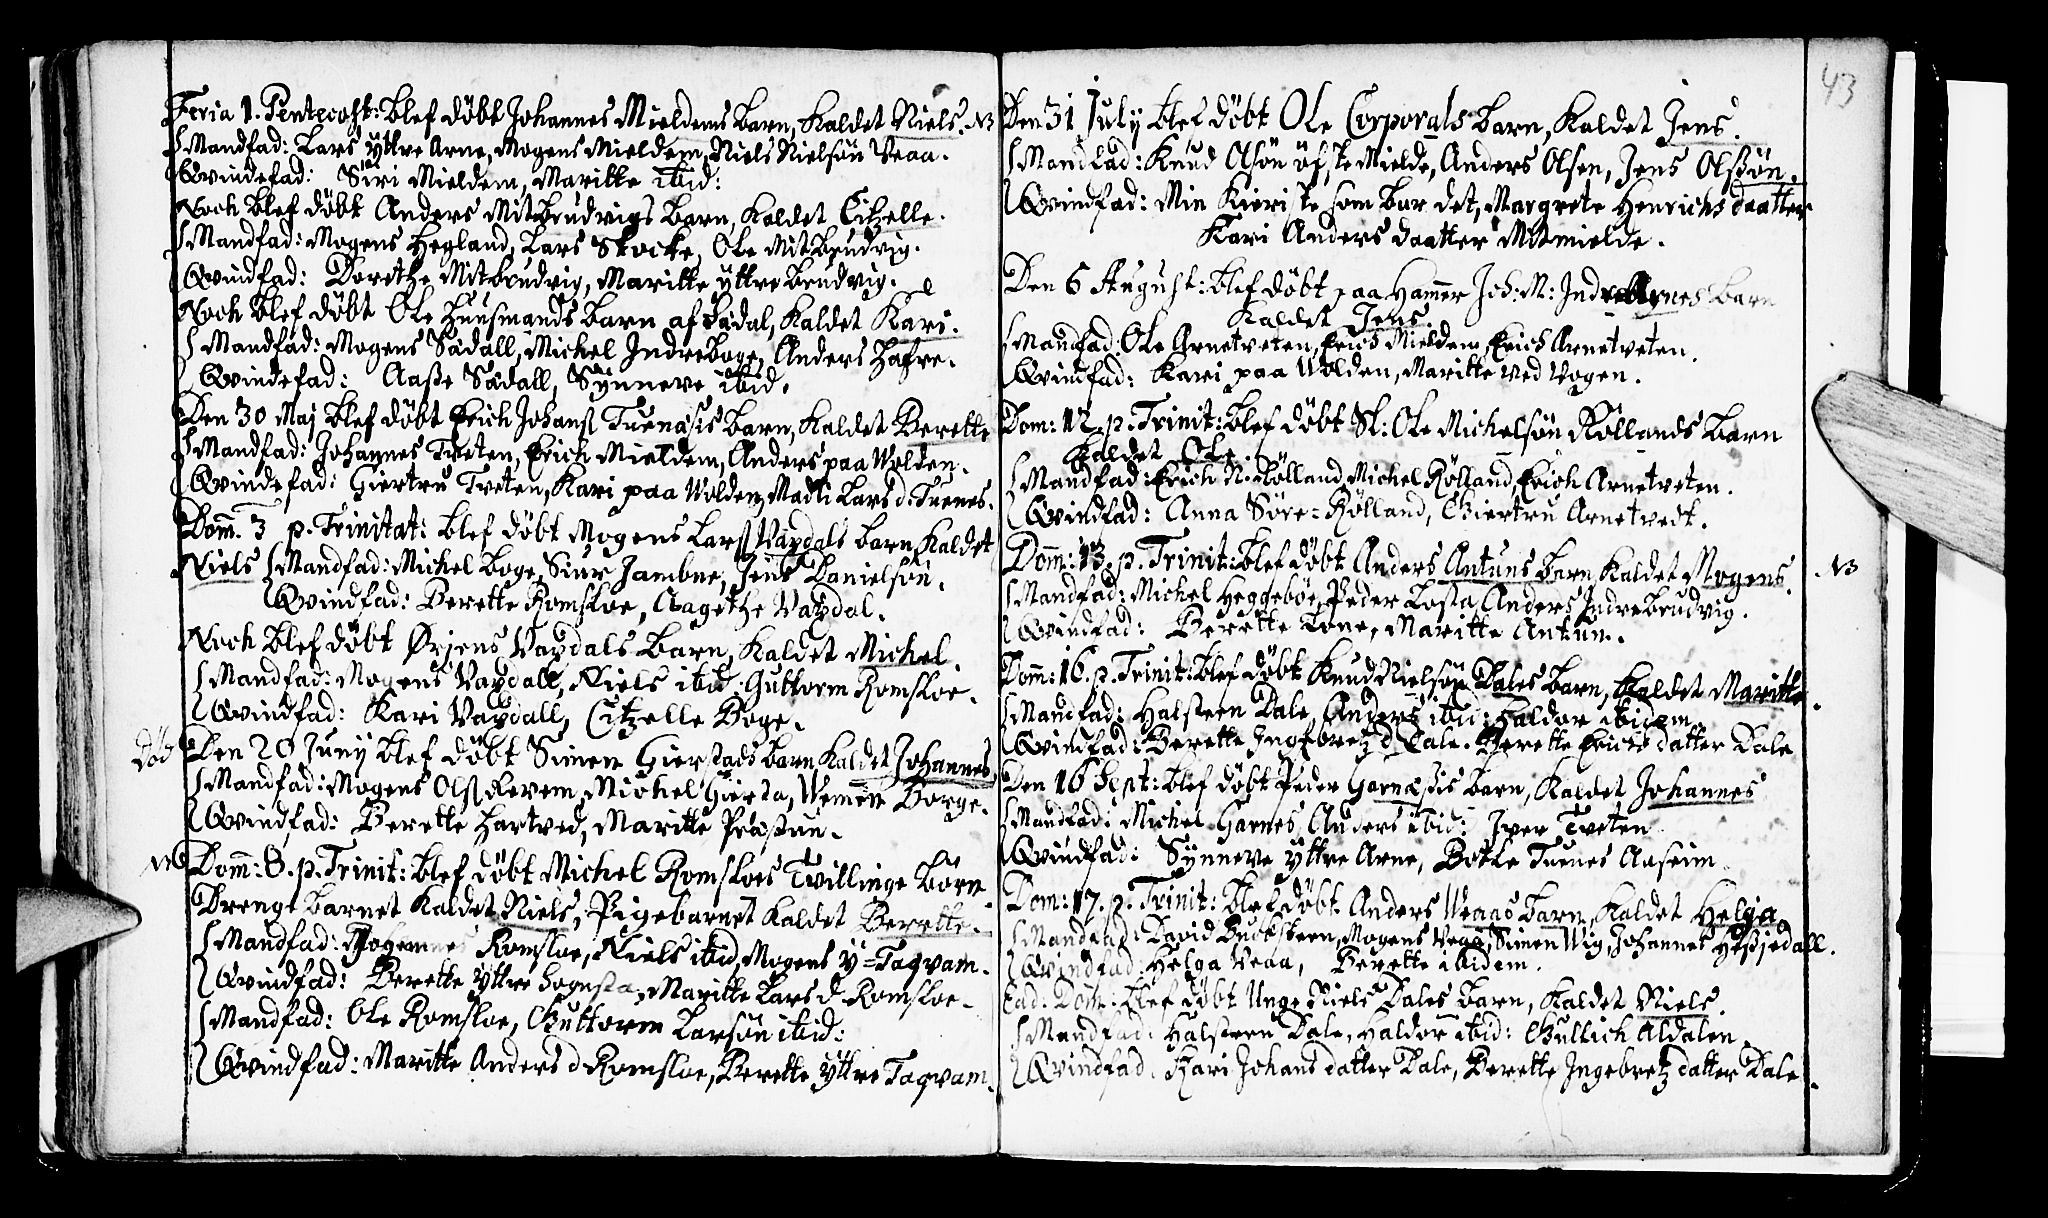 Feria 1. Pentecost: blef döbt Johannes Mieldems barn, kaldet Niels. NB
Mandfad: Lars yttre Arne, Mogens Mieldem, Niels Nielsön Veaa.
Qvindefad: Siri Mieldem, Maritte ibid:
Noch blef döbt Anders Mitbrudvigs barn, kaldet Citzelle.
Mandfad: Mogens Hegland, Lars Skocke, Ole Mitbrudvig.
Qvindfad: Dorethe Mitbrudvig, Maritte yttre brudvig.
Noch blef döbt Ole Huusmands barn af Sädal, kaldet Kari.
Mandfad: Mogens Sädall, Michel Indreboge, Anders Hafre.
Qvindefad: Aaße Sädall, Synneve ibid.
Den 30 Maj blef döbt Erich Johans Tuenæsis barn, kaldet Berette
Mandfad: Johannes Tveten, Erich Mieldem, Anders paa Wolden.
Qvindefad: Giertru Tveten, Kari paa Wolden, Madli Lars d. Tuenes.
Dom. 3 p. Trinitat: blef döbt Mogens Lars Vaxdals barn, kaldet
Niels Mandfad: Michel Boge, Siur Jambne, Jens Danielsön.
Qvindfad: Berette Romsloe, Aagethe Vaxdal.
Noch blef döbt Ørjens Vaxdals barn, kaldet Michel.
Mandfad: Mogens Vaxdall, Niels ibid: Guttorm Romsloe.
Qvindfad: Kari Vaxdall, Citzelle Boge.
Död Den 20 Juny blef döbt Simen Gierstads barn kaldet Johannes
Mandfad: Mogens Ols Revem, Michel Giersta, Wemon Borge.
Qvindfad: Berette Hartved, Maritte Præstun.
NB Dom: 8. p. Trinit: blef döbt Michel Romsloes Tvillinge börn
Drenge barnet kaldet Niels, Pigebarnet kaldet Berette.
Mandfad: Johannes Romsloe, Niels ibid, Mogens y=Taqvam.
Qvindfad: Berette yttre Hognsta, Maritte Lars d. Romsloe.
Mandfad: Ole Romsloe, Guttorm Larsön ibid:
Qvindfad: Maritte Anders d Romsloe, Berette yttre Taqvam.
43
Den 31 July blef döbt Ole Corporals barn, kaldet Jens.
Mandfad: Knud Olsön öfste Mielde, Anders Olsen, Jens Olßön.
Qvindfad: Min Kieriste som bar det, Margrete Henrichsdaatter
Kari Andersdaatter Mitmielde.
Den 6 August: blef döbt paa Hamer Joh: M: Indre Arnes barn
kaldet Jens
Mandfad: Ole Arnetveten, Erich Mieldem, Erich Arnetveten.
Qvindfad: Kari paa Wolden, Maritte ved Vogen.
Dom: 12. p. Trinit: blef döbt Sl: Ole Michelsön Röllands barn
kaldet Ole.
Mandfad: Erich N. Rölland, Michel Rölland, Erich Arnetveten.
Qvindfad: Anna Söre=Rölland, Giertru Arnetvedt.
Dom: 13. p. Trinit: blef döbt Anders Antuns barn, kaldet Mogens. NB
Mandfad: Michel Heggeböe, Peder Losta, Anders Indrebrudvig.
Qvindfad: Berette Tone, Maritte Antun.
Dom: 16. p. Trinit: blef döbt Knud Nielsön Dales barn, kaldet Maritte.
Mandfad: Halsteen Dale, Anders ibid: Haldor ibidem
Qvindfad: Berette Ingebretz d. Dale. Berette Erichsdatter Dale
Den 16 Sept: blef döbt Peder Garnæsis barn, kaldet Johannes
Mandfad: Michel Garnes, Anders ibid: Iver Tveten
Qvindfad: Synneve yttre Arne, Botle Tuenes Aaseim
Dom: 17. p. Trinit: blef döbt Anders Weaas barn, kaldet Helga
Mandfad: David Bucksteen, Mogens Veaa, Simen Wig, Johannes Heßjedall.
Qvindfad: Helga Veaa, Berette ibidem.
Ead: Dom: blef döbt Unge Niels Dales barn, kaldet Niels.
Mandfad: Halsteen Dale, Haldor ibid: Gullich Aldalen
Qvindfad. Kari Johansdatter Dale, Berette Ingebretz datter Dale.